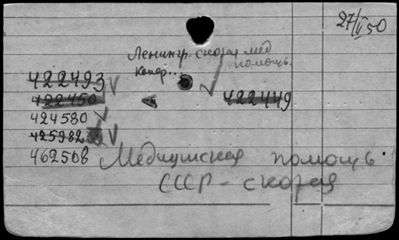 27/II 50
Ленингр. скорая мед
помощь.
Конф..
422493
422450
422449
424580
425982
462508
Медицинская помощь.
СССР - скорая